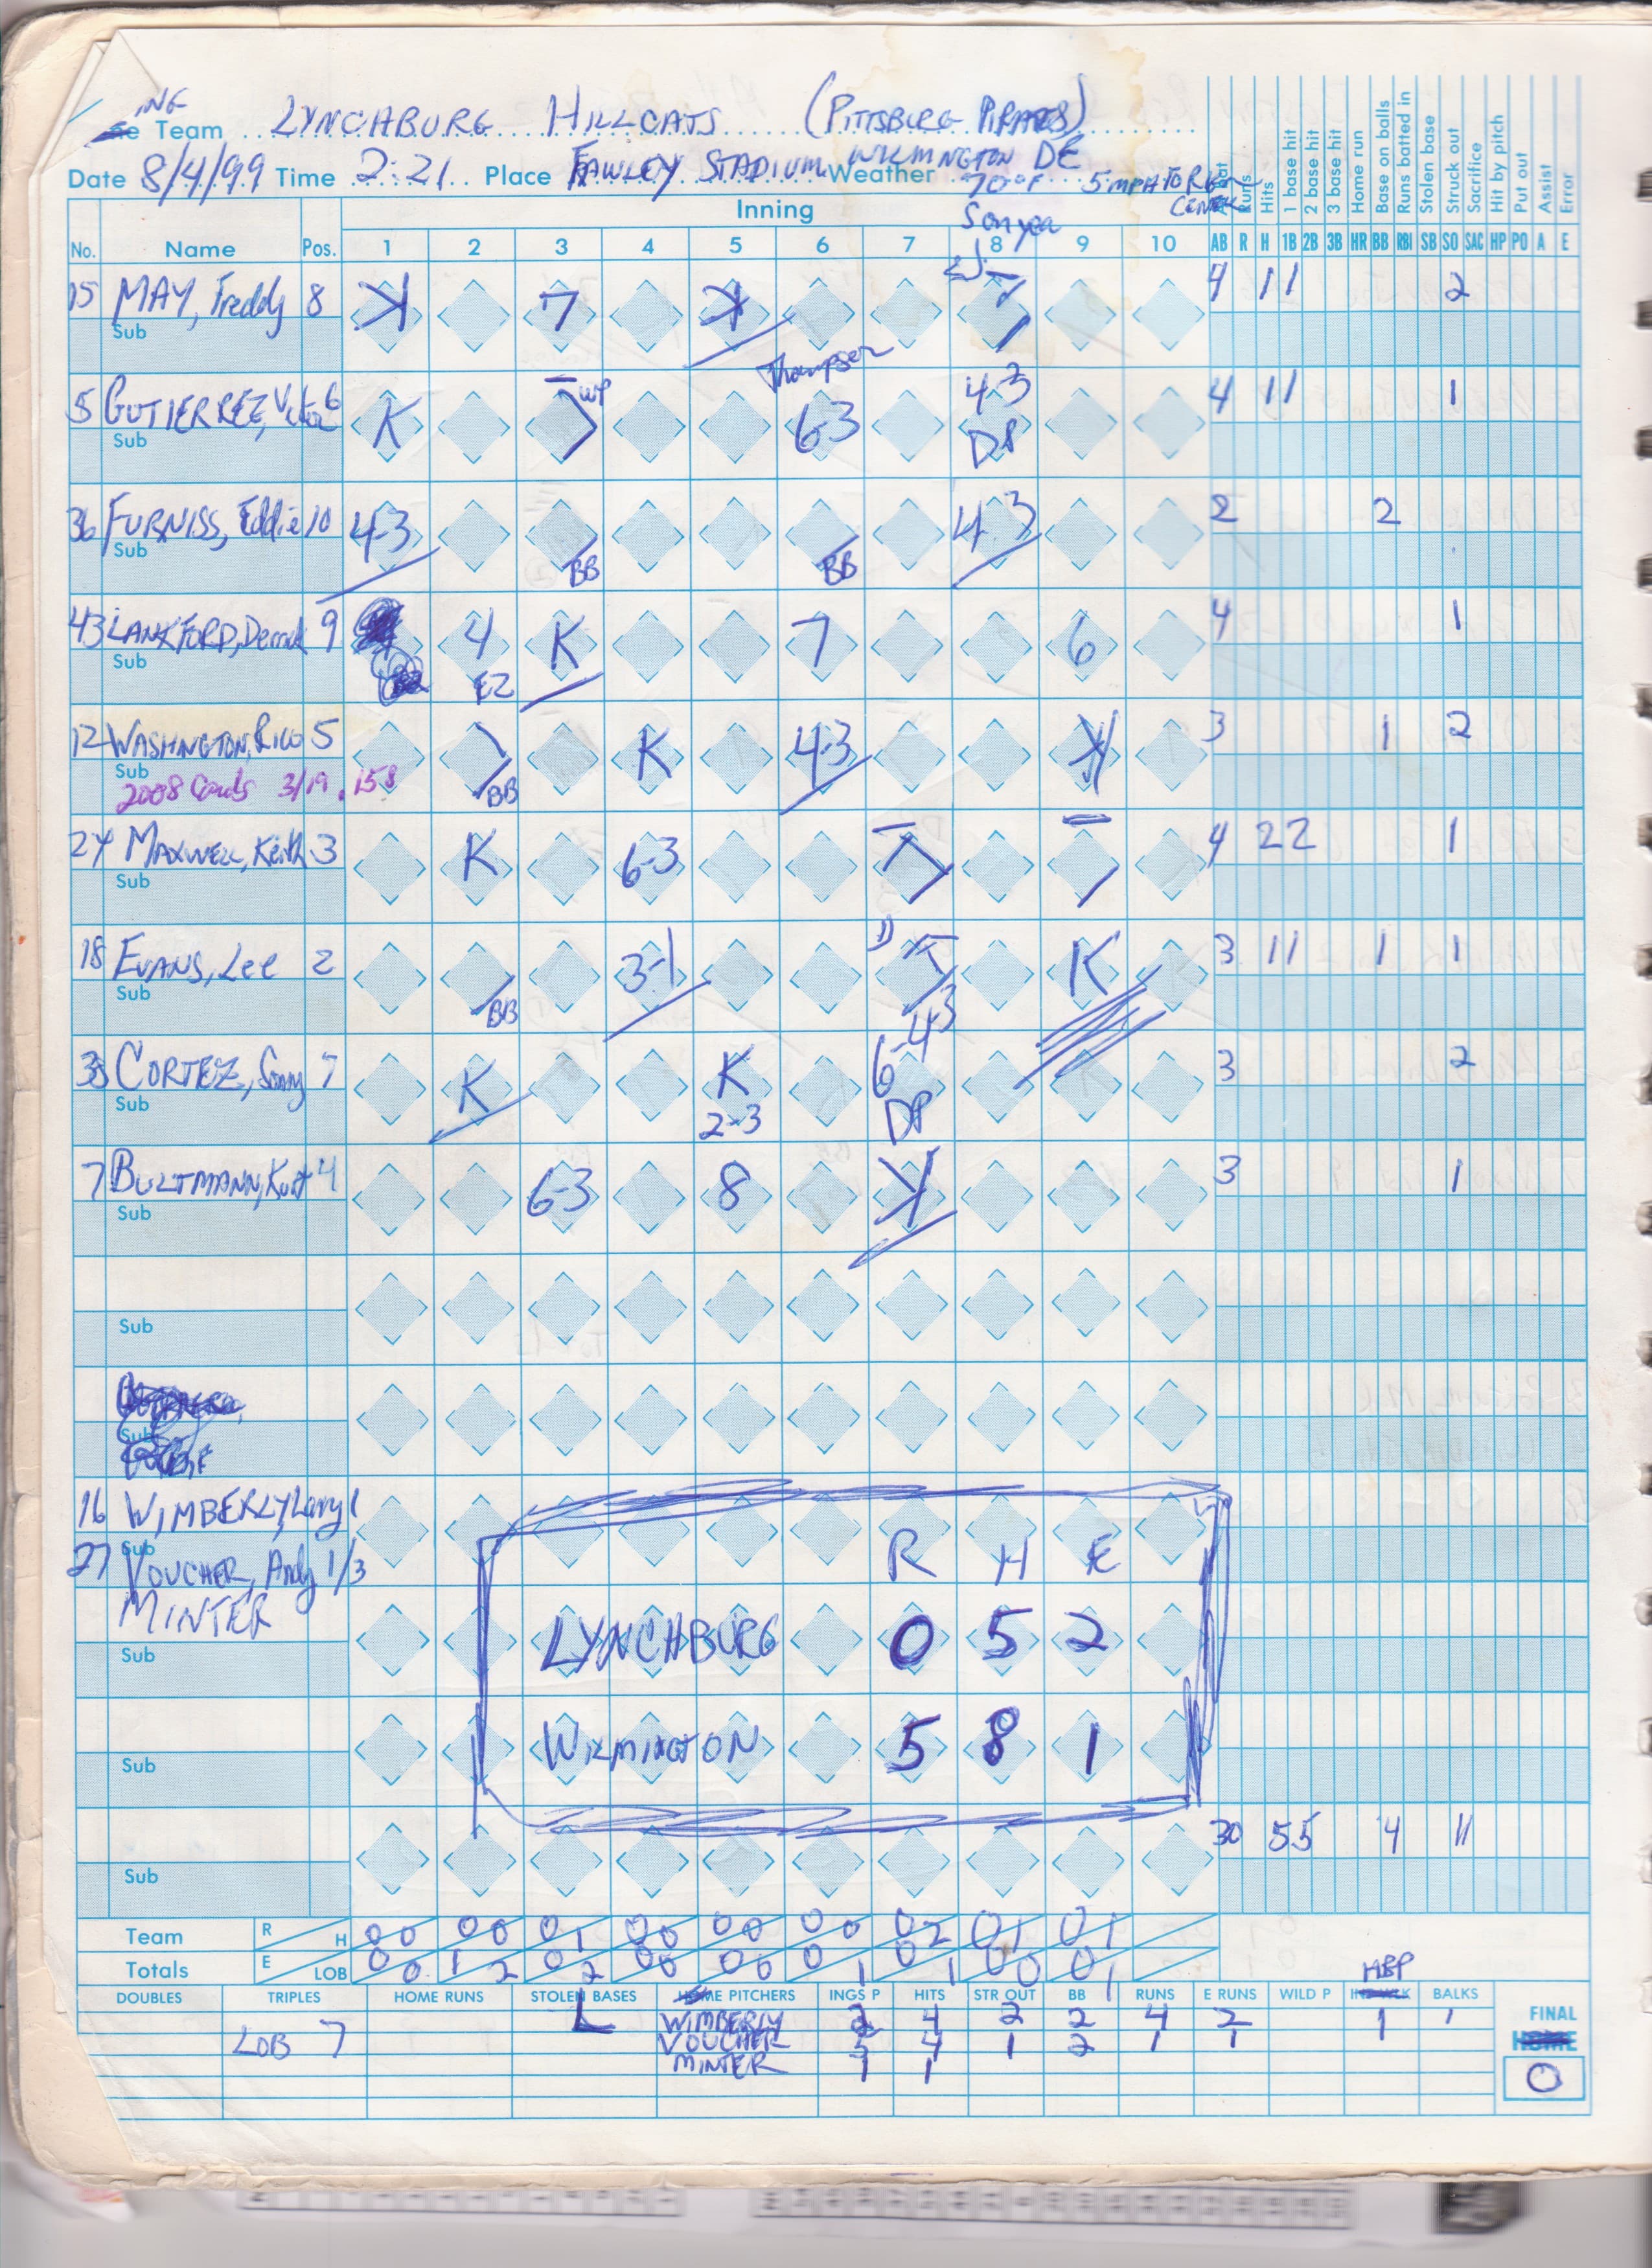 ING
Team LYNCHBURG HILLCATS (PITTSBURG PIRATES)
Date 8/4/99 Time 2:21 Place FAWLEY STADIUM WILMINGTON DE Weather 70°F 5 MPH TO RGT CENTER
At bat Runs Hits 1 base hit 2 base hit 3 base hit Home run Base on balls Runs batted in Stolen base Struck out Sacrifice Hit by pitch Put out Assist Error
Inning
Sonyea
No. Name Pos. 1 2 3 4 5 6 7 8 9 10 AB R H 1B 2B 3B HR BB RBI SB SO SAC HP PO A E
15 MAY, Freddy 8 K 7 K 4 1 1 2
Sub
Thompson
5 GUTIERREZ, Victor 6 K WP 6-3 4-3 DP 4 1 1 1
Sub
36 FURNISS, Eddie 10 4-3 BB BB 4-3 2 2
Sub
43 LANKFORD, Derrick 9 4 E2 K 7 6 4 1
Sub
12 WASHINGTON, RICO 5 BB K 4-3 K 3 1 2
Sub
2008 Cards 3/19 .158
24 MAXWELL, Keith 3 K 6-3 4 2 2 1
Sub
18 EVANS, Lee 2 BB 3-1 K 3 1 1 1 1
Sub
33 CORTEZ, Sonny 7 K K 2-3 6-4-3 DP 3 2
Sub
7 BULTMANN, Kurt 4 6-3 8 K 3 1
Sub
Sub
Sub
16 WIMBERLY, Larry 1
Sub
27 VOUCHER, Andy 1/3
MINTER
Sub
R H E
LYNCHBURG 0 5 2
WILMINGTON 5 8 1
Sub
30 5 5 4 11
Sub
Team R H 0 0 0 0 0 1 0 0 0 0 0 0 0 2 0 1 0 1
Totals E LOB 0 0 1 2 0 2 0 0 0 0 0 1 0 1 0 0 0 1
HBP
DOUBLES TRIPLES HOME RUNS STOLEN BASES PITCHERS INGS P HITS STR OUT BB RUNS E RUNS WILD P BALKS FINAL
L WIMBERLY 2 4 2 2 4 2 1 1
LOB 7 VOUCHER 5 4 1 2 1 1
MINTER 1 1
0